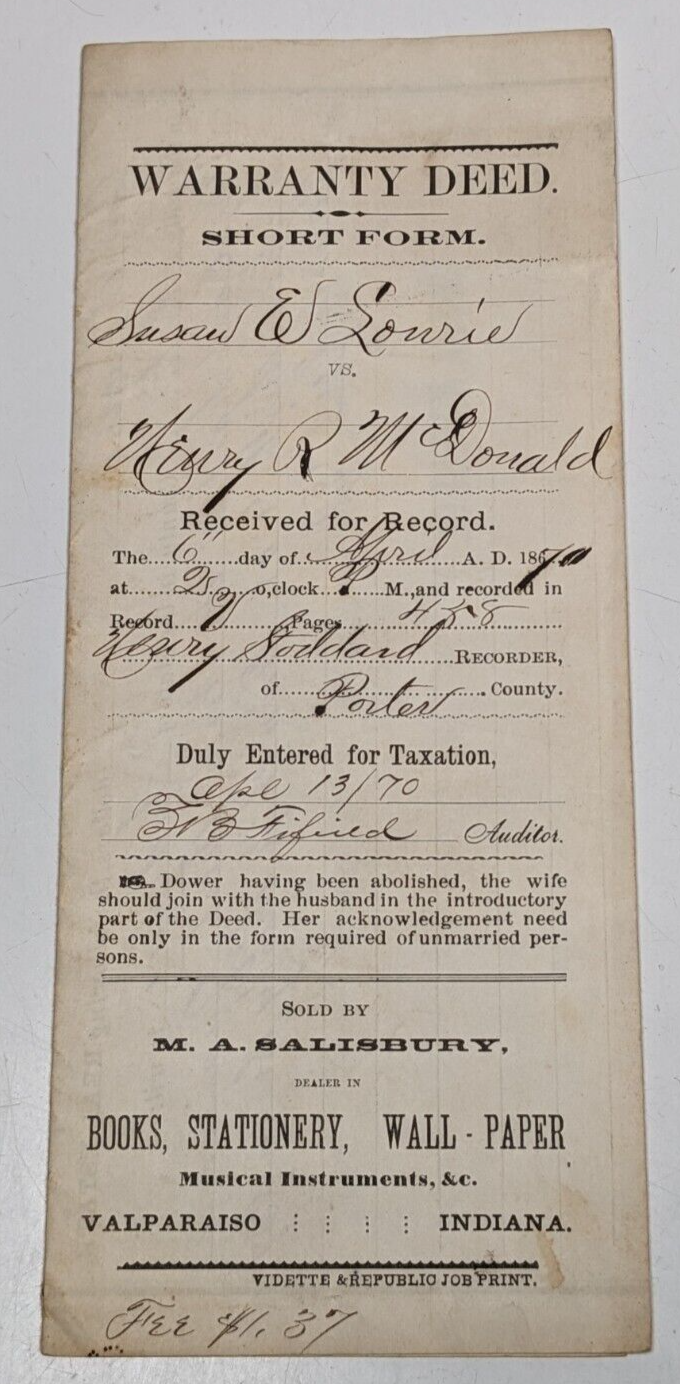 WARRANTY DEED.
SHORT FORM.
Susan E Lowrie
VS.
Henry R McDonald
Received for Record.
The 6" day of April A. D. 1870
at 2 o,clock P M., and recorded in
Record V Page 458
Henry Stoddard RECORDER,
of Porter County.
Duly Entered for Taxation,
Apl 13/70
Fifield Auditor.
Dower having been abolished, the wife
should join with the husband in the introductory
part of the Deed. Her acknowledgement need
be only in the form required of unmarried per-
sons.
SOLD BY
M. A. SALISBURY,
DEALER IN
BOOKS, STATIONERY, WALL - PAPER
Musical Instruments, &c.
VALPARAISO INDIANA.
VIDETTE & REPUBLIC JOB PRINT.
Fee $1.37